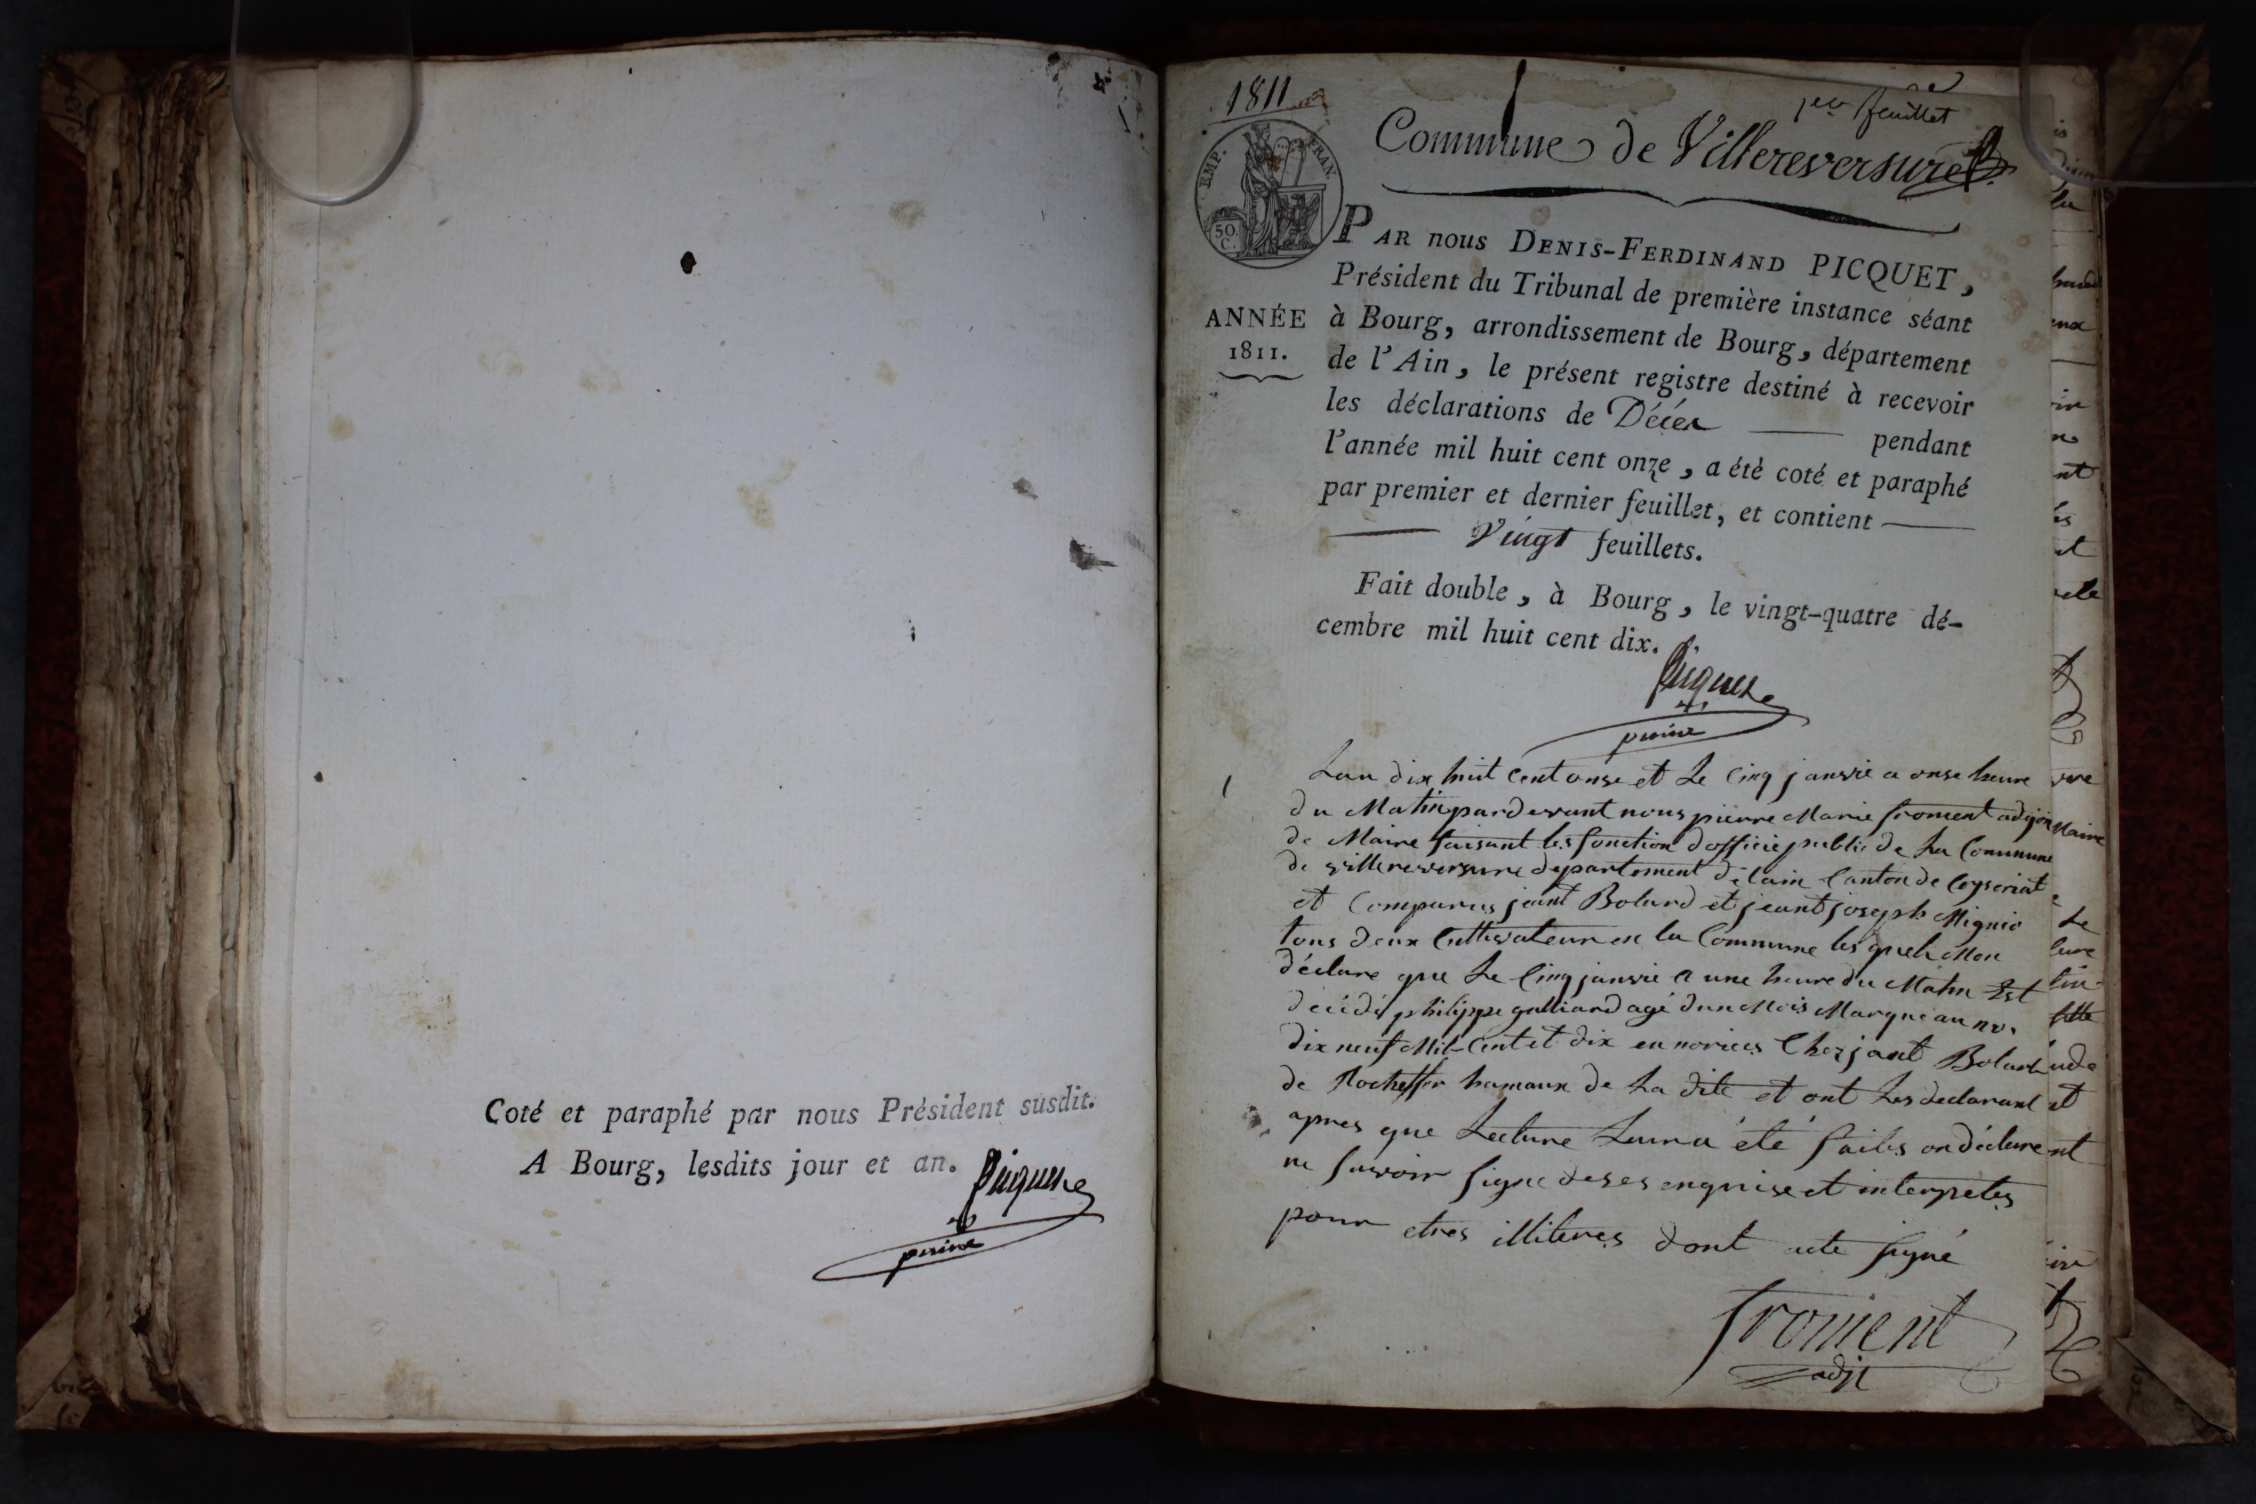 Coté et paraphé par nous Président susdit.
A Bourg, lesdits jour et an.
Picquet
1811
1er feuillet
Commune de Villereversure
EMP. FRAN.
50.
C.
ANNÉE
1811.
PAR nous DENIS-FERDINAND PICQUET,
Président du Tribunal de première instance séant
à Bourg, arrondissement de Bourg, département
de l'Ain, le présent registre destiné à recevoir
les déclarations de Décès pendant
l'année mil huit cent onze, a été coté et paraphé
par premier et dernier feuillet, et contient
Vingt feuillets.
Fait double, à Bourg, le vingt-quatre dé-
cembre mil huit cent dix.
Picquet
1
Lan dix huit cent onse et Le Cinq janvié a onse heure
du Matin pardevant nous pierre Marie froment adjoin
de Maire faisant les fonction dofficié public de La Commune
de villereversure departement de lain Canton de Ceyseriat
et Comparus jeant Bolard et jeant joseph Mignio
tous deux Cultivateur en la Commune les quels Mon
déclare que Le Cinq janvié a une heure du Matin Est
décidé philippe galliard agé dun Mois Marqué au no.
dix neuf Mil Cent et dix en norices Chez jant Bolard
de Rocheffor hamaux de La dite et ont Les declarant
apres que Lecture Leur a été faites on déclare
ne savoir signe deses enquise et interpretes
pour etres illiteres dont acte signé
froment
adjt